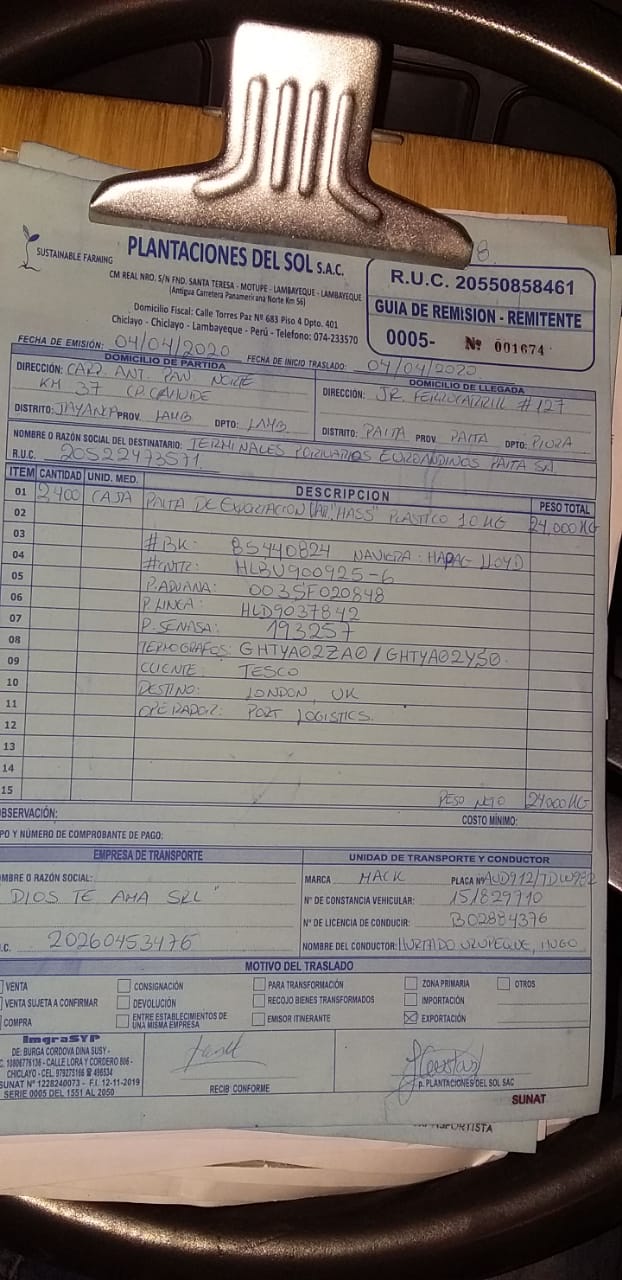 8.
SUSTAINABLE FARMING
PLANTACIONES DEL SOL S.A.C.
CM REAL NRO. S/N FND. SANTA TERESA - MOTUPE - LAMBAYEQUE - LAMBAYEQUE
(Antigua Carretera Panamericana Norte Km 56)
Domicilio Fiscal: Calle Torres Paz Nº 683 Piso 4 Dpto. 401
Chiclayo - Chiclayo - Lambayeque - Perú - Telefono: 074-233570
R.U.C. 20550858461
GUIA DE REMISION - REMITENTE
0005- Nº 001674
FECHA DE EMISIÓN: 04/04/2020 FECHA DE INICIO TRASLADO: 04/04/2020
DOMICILIO DE PARTIDA
DIRECCIÓN: CARR. ANT. PAN NORTE
KM 37 CP. CRUCE
DISTRITO: JAYANCA PROV. LAMB DPTO: LAMB.
DOMICILIO DE LLEGADA
DIRECCIÓN: JR. FERROCARRIL #127
DISTRITO: PAITA PROV PAITA DPTO: PIURA
NOMBRE O RAZÓN SOCIAL DEL DESTINATARIO: TERMINALES PORTUARIOS EUROANDINOS PAITA SA.
R.U.C. 20522473571.
ITEM CANTIDAD UNID. MED. DESCRIPCION PESO TOTAL
01 2400 CAJA PALTA DE EXPORTACION VAR. "HASS" PLASTICO 10 KG 24,000 KG
02
03
04 #BK: 85440824 NAVIERA: HAPAG-LLOYD
05 #CNTR: HLBU900925-6
06 P. ADUANA: 0035F020848
07 P. LINEA: HLD9037842
08 P. SENASA: 193257
09 TERMOGRAFOS: GHTYA02ZA0 / GHTYA02YS0.
10 CLIENTE: TESCO
11 DESTINO: LONDON, UK
12 OPERADOR: PORT LOGISTICS.
13
14
15 PESO NETO 24000 KG
OBSERVACIÓN: COSTO MÍNIMO:
PO Y NÚMERO DE COMPROBANTE DE PAGO:
EMPRESA DE TRANSPORTE
MBRE O RAZÓN SOCIAL:
DIOS TE AMA SRL"
.C. 20260453476
UNIDAD DE TRANSPORTE Y CONDUCTOR
MARCA MACK PLACA Nº
Nº DE CONSTANCIA VEHICULAR: 151829710
Nº DE LICENCIA DE CONDUCIR: B02884376
NOMBRE DEL CONDUCTOR: HURTADO URUPEQUE, HUGO
MOTIVO DEL TRASLADO
VENTA CONSIGNACIÓN PARA TRANSFORMACIÓN ZONA PRIMARIA OTROS
VENTA SUJETA A CONFIRMAR DEVOLUCIÓN RECOJO BIENES TRANSFORMADOS IMPORTACIÓN
COMPRA ENTRE ESTABLECIMIENTOS DE UNA MISMA EMPRESA EMISOR ITINERANTE EXPORTACIÓN
ImgraSYP
DE: BURGA CORDOVA DINA SUSY -
C. 10806776136 - CALLE LORA Y CORDERO 806 -
CHICLAYO - CEL. 979275166 ☎ 496534
SUNAT Nº 1228240073 - F.I. 12-11-2019
SERIE 0005 DEL 1551 AL 2050
RECIBI CONFORME
p. PLANTACIONES DEL SOL SAC
SUNAT